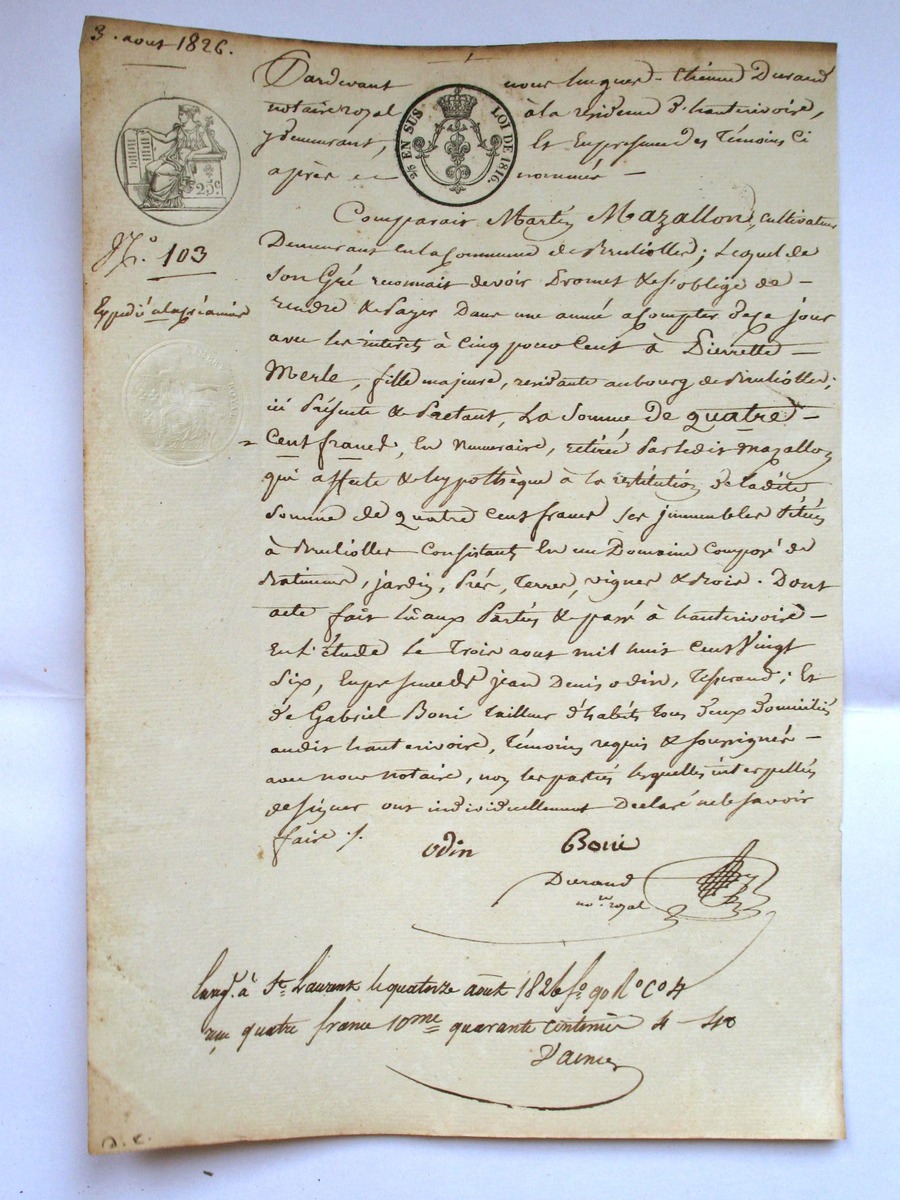 3. aout 1826.
Pardevant nous hugues-Etienne Durand
notaire royal à la residence d'hauterivoire,
y demeurant, Et En presence des Témoins Ci
après nommés -
2/5 EN SUS LOI DE 1816.
25c
N.o 103
Expedié a la créancière
Comparait Martin Mazallon, cultivateur
Demeurant en la Commune de Brullioles; Lequel de
Son Gré reconnait devoir Promet & s'oblige de -
rendre & Payer Dans une année a Compter de ce jour
avec les interêts à Cinq pour Cent à Pierrette -
Merle, fille majeure, residante au bourg de Brullioles;
ici Présente & Acceptant, La Somme de quatre -
= Cent francs, En Numeraire, retirée Par ledit Mazallon
qui affecte & hypothèque à la restitution de ladite
Somme de quatre Cent francs Ses jmmeubles Situés
à Brullioles Consistants En un Domaine Composé de
Batiments, jardin, Prés, Terres, vignes & Bois. Dont
acte fait Lû aux Parties & passé à hauterivoire -
En l'étude le Trois aout mil huit Cent Vingt
Six, En presence de jean Denis odin, Tisserand; Et
de Gabriel Boni Tailleur d'habits Tous Deux Domiciliés
audit hauterivoire, Témoins requis & soussignés -
avec nous notaire, non les parties lesquelles interpellées
de signer ont individuellement Declaré ne le Savoir
faire ./.
odin Boni
Durand
no.re royal
Enreg.t à St. Laurent le quatorze aout 1826 fo. 90 Ro Co 4
reçu quatre francs 10me quarante centimes 4-40